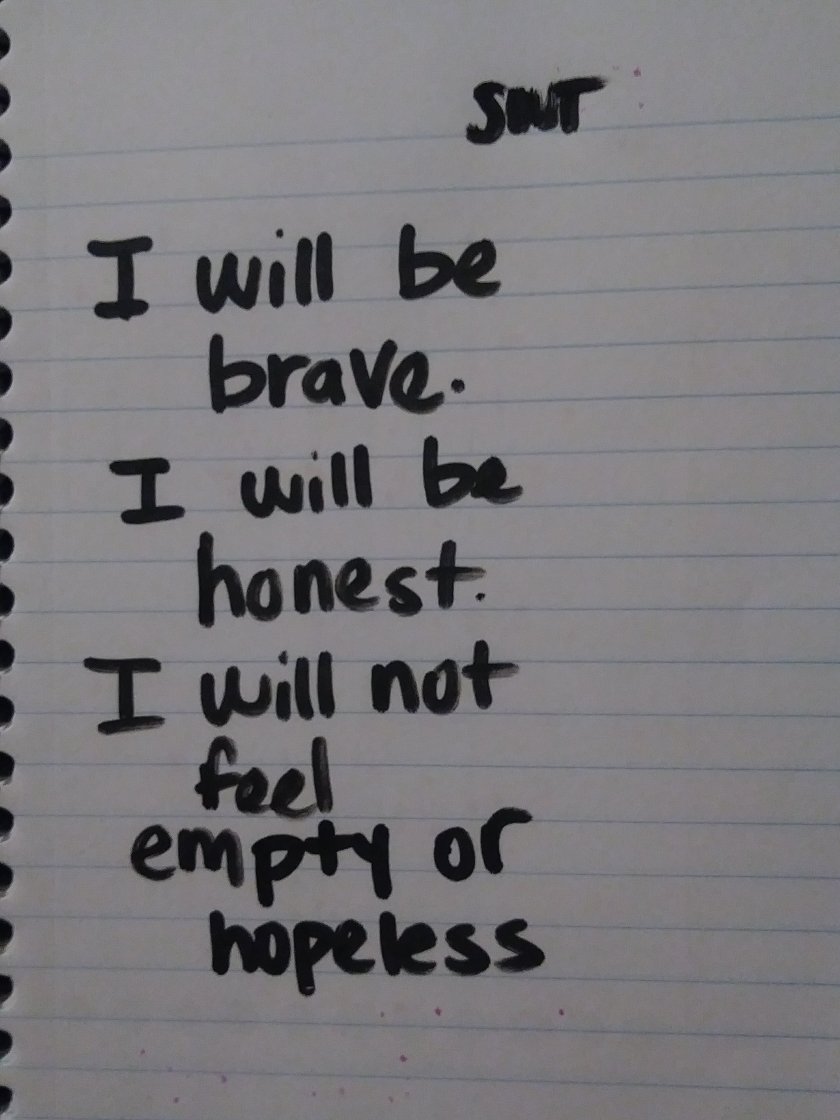 I will be
brave.
I will be
honest.
I will not
feel
empty or
hopeless